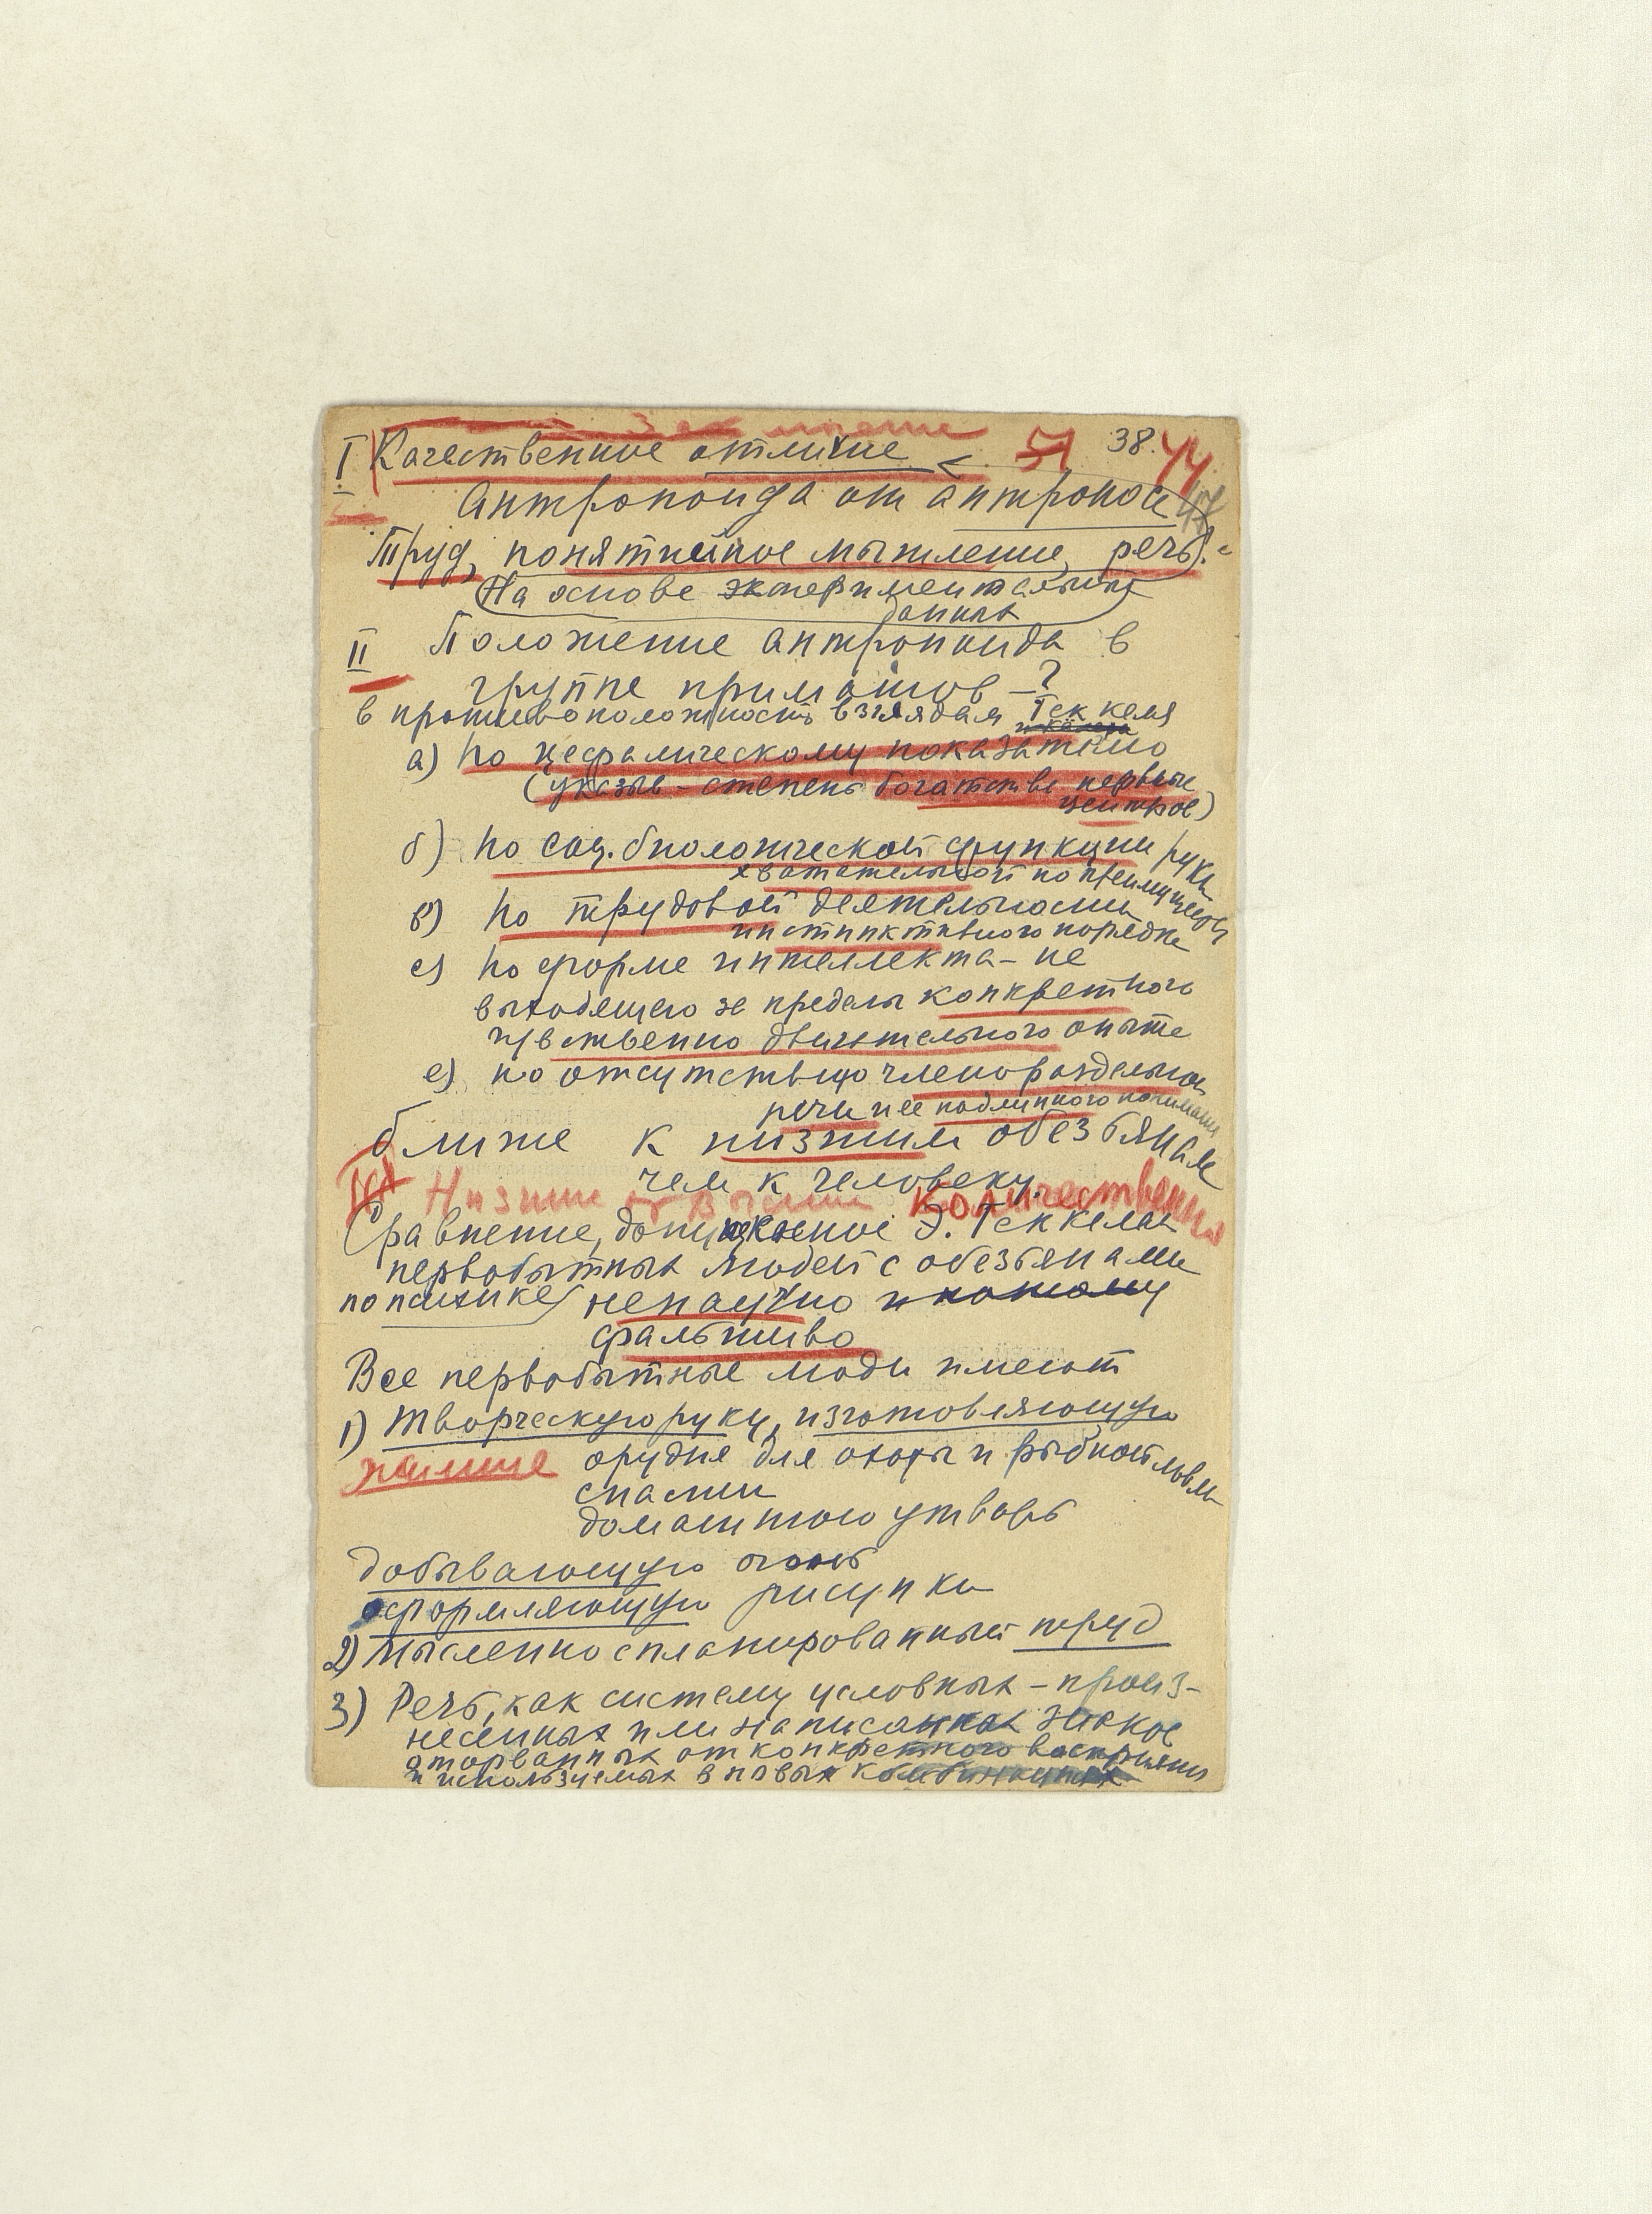 Заключение
I Качественное отличие 51 38. 44
антропоида от антропоса 47
Труд, понятийное мышление, речь.
(На основе экспериментальных
данных
II Положение антропоида в
группе приматов – ?
в противоположность взглядам Геккеля
а) по цефалическому показателю
(указыв – степень богатства нервных
центров)
б) по соц. биологической функции руки
хватательной по преимуществу
в) по трудовой деятельности
инстинктивного порядка
с) по форме интеллекта – не
выходящего за пределы конкретного
чувственно двигательного опыта
е) по отсутствию членораздельной
речи и ее подлинного понимания
ближе к низшим обезьянам
чем к человеку.
III Низшие от Высших Количественно
Сравнение, допущенное Э. Геккелем
первобытных людей с обезьянами
по психике) ненаучно и потому
фальшиво
Все первобытные люди имеют
1) творческую руку, изготовляющую
орудия для охоты и рыбной ловли
снасти
домашнюю утварь
добывающую огонь
оформляющую рисунки
2) Мысленно спланированный труд
3) Речь, как систему условных – произ-
несенных или написанных знаков
оторванных от конкретного восприятия
и используемых в новых комбинациях